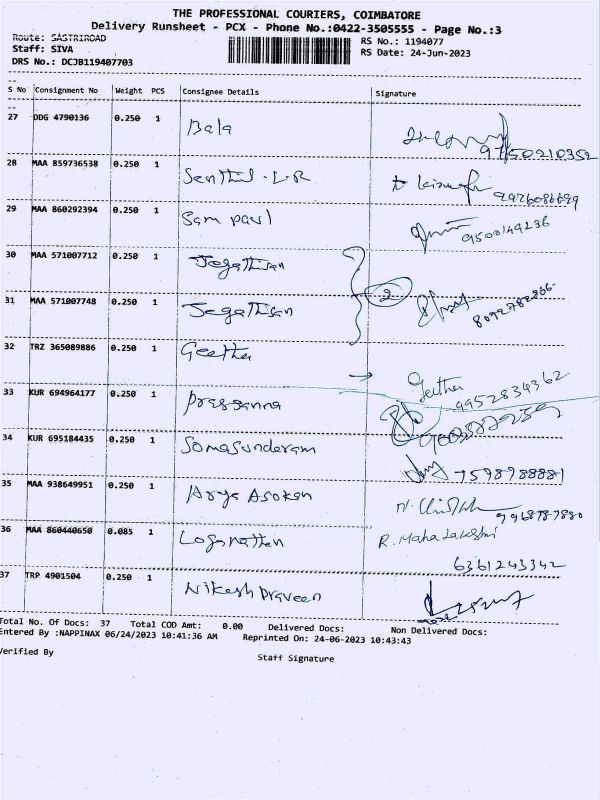 THE PROFESSIONAL COURIERS, COIMBATORE
Delivery Runsheet - PCX - Phone No.:0422-3505555 - Page No.:3
Route: SASTRIROAD
Staff: SIVA
DRS No.: DCJB119407703
RS No.: 1194077
RS Date: 24-Jun-2023
S No Consignment No Weight PCS Consignee Details Signature
27 DDG 4790136 0.250 1 Bala 9750210352
28 MAA 859736538 0.250 1 Senthil
29 MAA 860292394 0.250 1 Sam paul 9500149236
30 MAA 571007712 0.250 1 Jegathisan
31 MAA 571007748 0.250 1 Jegathisan 2
32 TRZ 365089886 0.250 1 Geetha
Geetha 9952834362
33 KUR 694964177 0.250 1 prassanna
34 KUR 695184435 0.250 1 Somasunderam 7598988881
35 MAA 938649951 0.250 1 Arya Asokan
36 MAA 860440650 0.085 1 Loganathen R. Mahalakshmi
6361243342
37 TRP 4901504 0.250 1 Nikesh praveen
Total No. Of Docs: 37 Total COD Amt: 0.00 Delivered Docs: Non Delivered Docs:
Entered By :NAPPINAX 06/24/2023 10:41:36 AM Reprinted On: 24-06-2023 10:43:43
Verified By Staff Signature